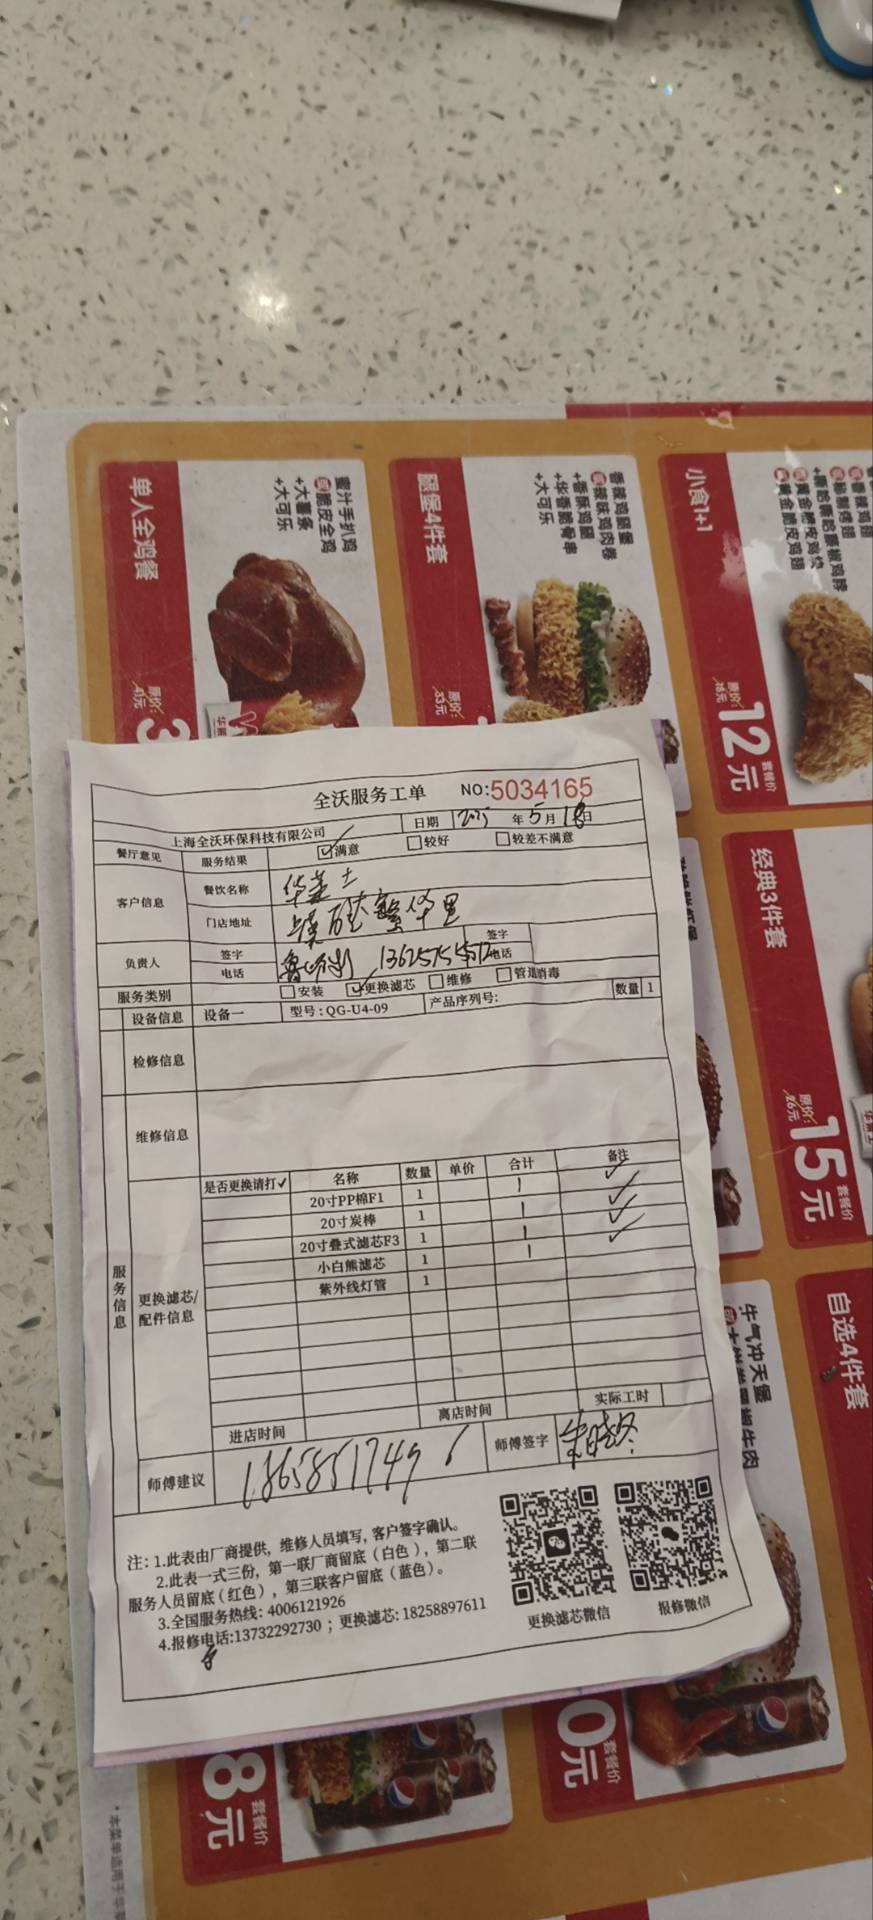 小食1+1
原价:
18元
12元
套餐价
腿堡4件套
香辣鸡腿堡
+香酥鸡腿
+华香脆骨串
+大可乐
原价:
33元
单人全鸡餐
蜜汁手扒鸡
或脆皮全鸡
+大薯条
+大可乐
原价:
41元
3
经典3件套
原价:
26元
15元
套餐价
自选4件套
牛气冲天堡
0元
套餐价
8元
套餐价
全沃服务工单 NO:5034165
上海全沃环保科技有限公司 日期 2025 年 5 月 18 日
餐厅意见 服务结果 ☑满意 □较好 □较差不满意
客户信息 餐饮名称 华莱士
门店地址 繁华里
负责人 签字 签字
电话 电话
服务类别 □安装 ☑更换滤芯 □维修 □管道消毒
设备信息 设备一 型号:QG-U4-09 产品序列号: 数量 1
检修信息
维修信息
服务信息
更换滤芯/配件信息
是否更换请打✓ 名称 数量 单价 合计 备注
20寸PP棉F1 1 1 ✓
20寸炭棒 1 1 ✓
20寸叠式滤芯F3 1 1 ✓
小白熊滤芯 1 1 ✓
紫外线灯管 1
进店时间 离店时间 实际工时
师傅建议 18658517496 师傅签字 朱晓冬
注: 1.此表由厂商提供, 维修人员填写, 客户签字确认。
2.此表一式三份, 第一联厂商留底(白色), 第二联
服务人员留底(红色), 第三联客户留底(蓝色)。
3.全国服务热线: 4006121926
4.报修电话:13732292730 ; 更换滤芯: 18258897611
更换滤芯微信 报修微信